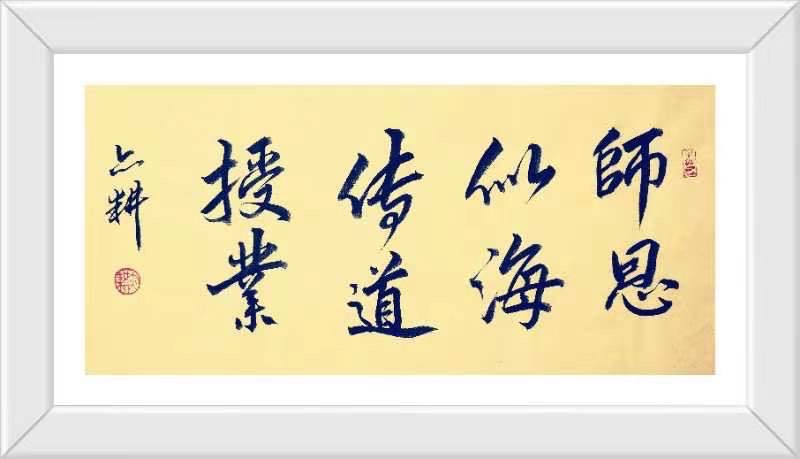 師恩
似海
傳道
授業
心耕